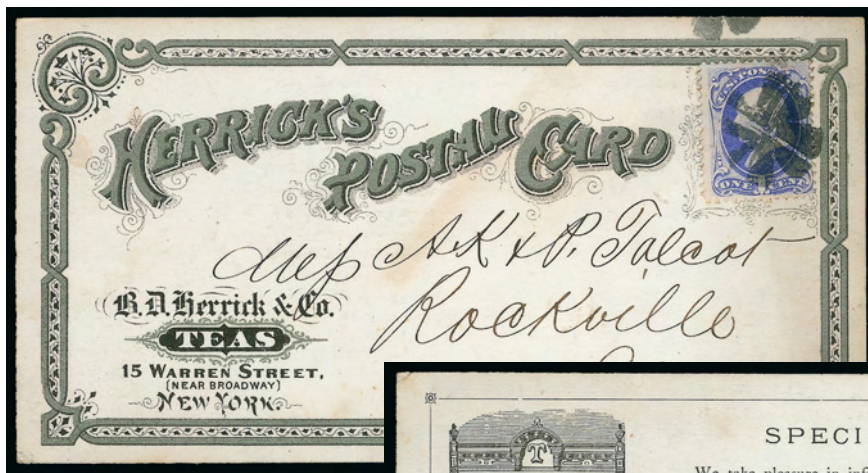 HERRICK'S
POSTAL CARD
U.S. POSTAGE
ONE CENT
Mess A.K & P. Talcot
Rockville
B. D. Herrick & Co.
TEAS
15 WARREN STREET,
(NEAR BROADWAY)
NEW YORK.
T
SPECI
We take pleasure in inf